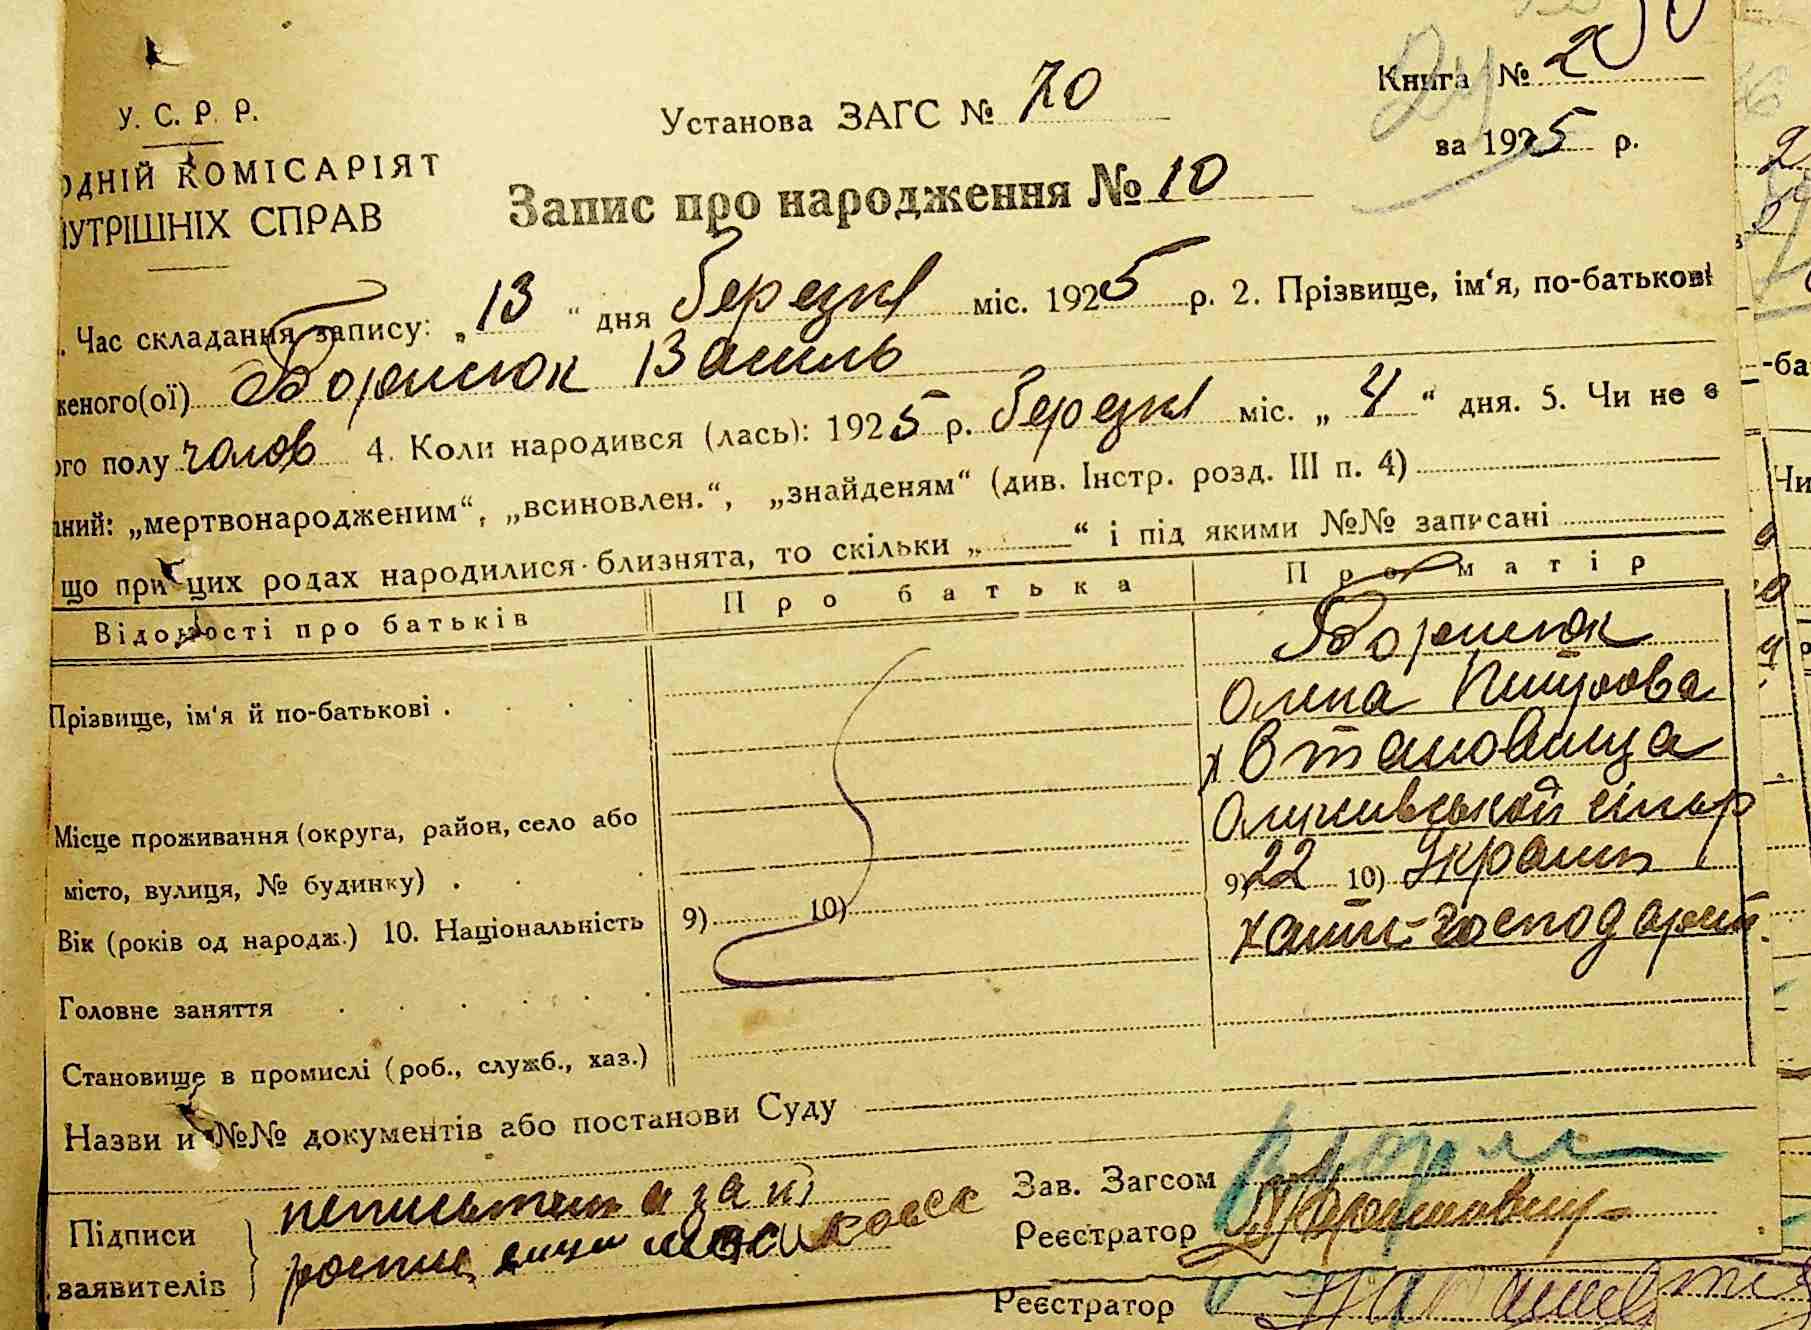 У. С. Р. Р.
ОДНІЙ КОМІСАРІЯТ
НУТРІШНІХ СПРАВ
Установа ЗАГС № 70
Книга № 2
за 1925 р.
Запис про народження № 10
. Час складання запису: „13“ дня березня міс. 1925 р. 2. Прізвище, ім‘я, по-батькові
женого(ої) Борисюк Василь
ого полу чолов 4. Коли народився (лась): 1925 р. березня міс. „4“ дня. 5. Чи не є
аний: „мертвонародженим“, „всиновлен.“, „знайденям“ (див. Інстр. розд. III п. 4)
що при цих родах народилися близнята, то скільки „ “ і під якими №№ записані
Відомості про батьків Про батька Про матір
Прізвище, ім‘я й по-батькові . Борисюк
Олена
Місце проживання (округа, район, село або
місто, вулиця, № будинку) .
Вік (років од народж.) 10. Національність 9) 10) 9) 22 10) Україн
Головне заняття хатн-господарст.
Становище в промислі (роб., служб., хаз.)
Назви и №№ документів або постанови Суду
Підписи заявителів
неписьменна за її
Зав. Загсом
Реєстратор
Реєстратор